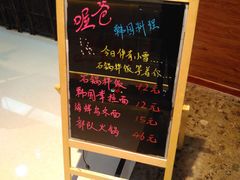 喔爸
韩国料理
今日伴有小雪...
石锅拌饭等着你...
石锅拌饭 12元
韩国拉面 12元
海鲜乌冬面 15元
部队火锅 46元